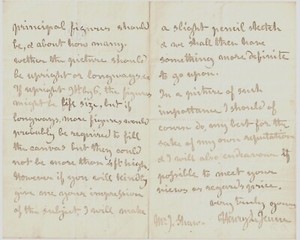 principal figures should
be, & about how many.
wether the picture should
be upright or longways.
If upright the figures
might be life size, but if
longways, more figures would
probably be required to fill
the canvas but they could
not be more than 4ft high.
However if you will kindly
give me your impression
of the subject I will make
a slight pencil sketch
& we shall then have
something more definite
to go upon.
In a picture of such
importance I should of
course do my best for the
sake of my own reputation
& I will also endeavour if
possible to meet your
views as regards price.
very truly yours